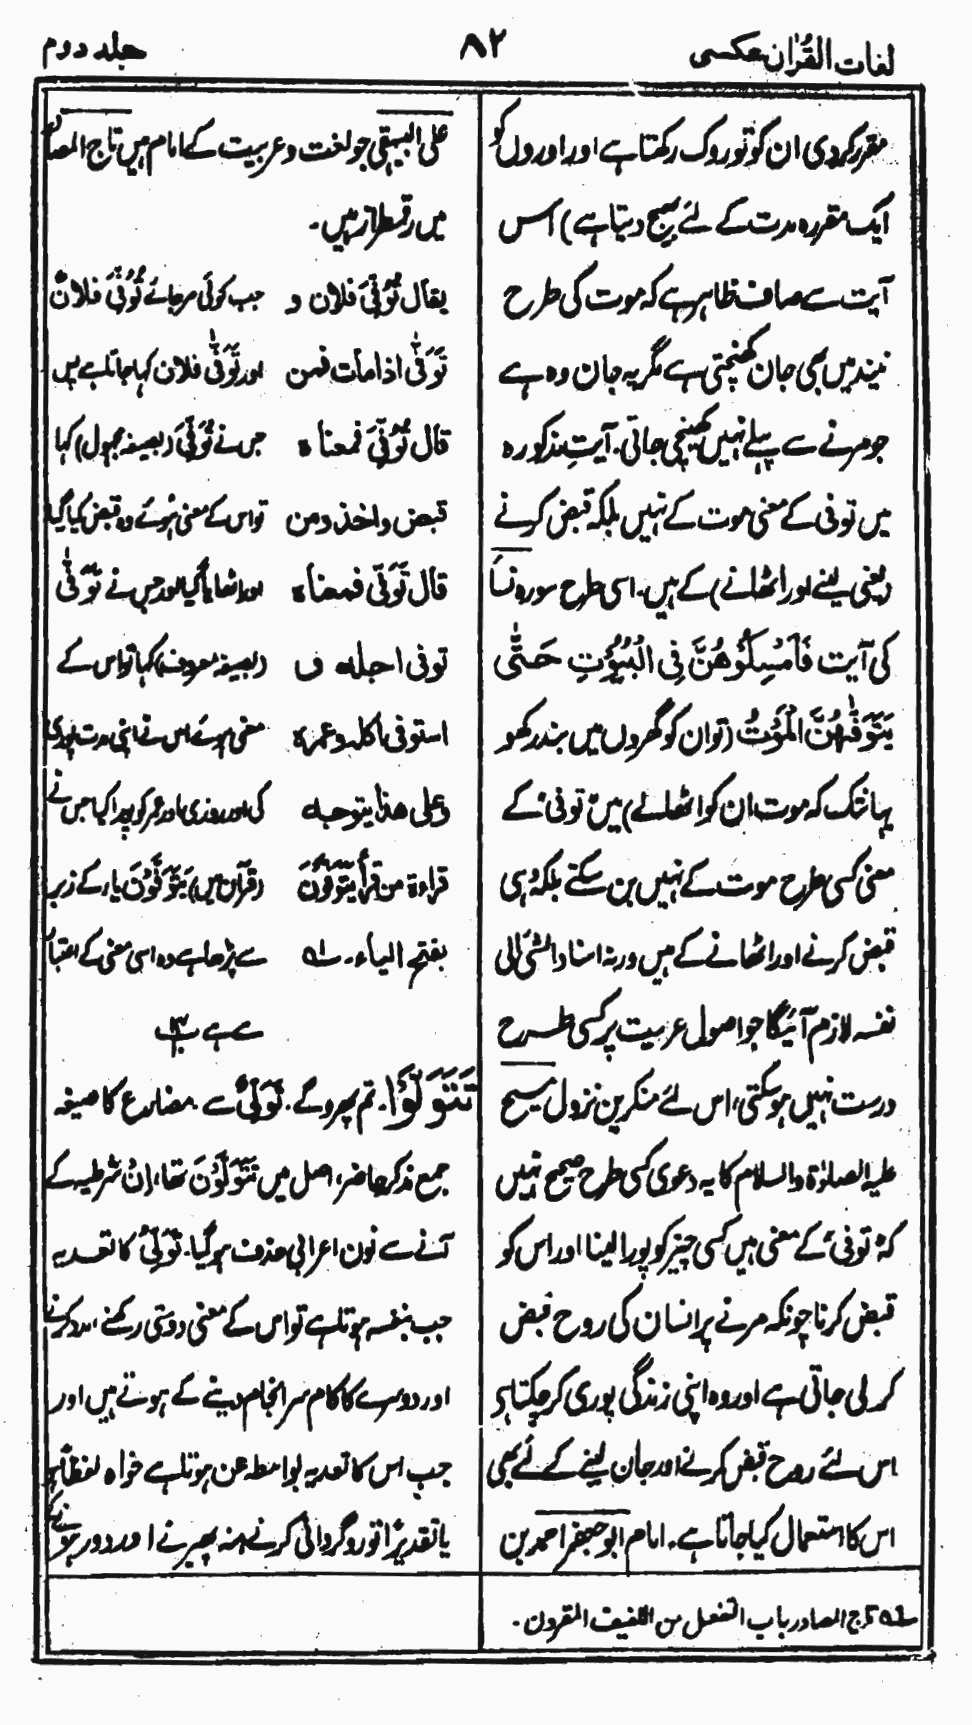 لغات القرآن عکسی
۸۲
جلد دوم
مقرر کردی ان کو تو روک رکھتا ہے اور اوروں کو
ایک مقررہ مدت کے لئے بھیج دیتا ہے) اس
آیت سے صاف ظاہر ہے کہ موت کی طرح
نیند میں بھی جان کھنچتی ہے مگر یہ جان وہ ہے
جو مرنے سے پہلے نہیں کھینچی جاتی۔ آیتِ مذکورہ
میں توفی کے معنی موت کے نہیں بلکہ قبض کرنے
(یعنی لینے اور اٹھانے) کے ہیں۔ اسی طرح سورہ نساء
کی آیت فَاَمْسِكُوْهُنَّ فِی الْبُيُوْتِ حَتّٰى
يَتَوَفّٰهُنَّ الْمَوْتُ (تو ان کو گھروں میں بند رکھو
یہانتک کہ موت ان کو اٹھالے) میں توفی کے
معنی کسی طرح موت کے نہیں بن سکتے بلکہ وہی
قبض کرنے اور اٹھانے کے ہیں ورنہ اسناد الشئ الی
نفسہ لازم آئیگا جو اصول عربیت پر کسی طرح
درست نہیں ہوسکتی، اس لئے منکرین نزول مسیح
علیہ الصلوٰۃ والسلام کا یہ دعوی کسی طرح صحیح نہیں
کہ توفی کے معنی ہیں کسی چیز کو پورا لینا اور اس کو
قبض کرنا چونکہ مرنے پر انسان کی روح قبض
کر لی جاتی ہے اور وہ اپنی زندگی پوری کر چکتا ہے
اس لئے روح قبض کرنے اور جان لینے کے لئے بھی
اس کا استعمال کیا جاتا ہے۔ امام ابو جعفر احمد بن
علی البیہقی جو لغت و عربیت کے امام ہیں تاج المصادر
میں رقمطراز ہیں۔
یقال تُوُفِّيَ فلان و جب کوئی مرجائے تُوُفِّيَ فلانٌ
تَوَفّٰى اذا مات فمن اور تَوَفّٰى فلان کہا جاتا ہے پس
قال تُوُفِّيَ فمعناه جس نے تُوُفِّيَ (بصیغہ مجہول) کہا
قبض واخذ ومن تو اس کے معنی ہوئے وہ قبض کیا گیا
قال تَوَفّٰى فمعناه اور اٹھایا گیا اور جس نے تَوَفّٰى
توفی اجله و (بصیغہ معروف) کہا تو اس کے
استوفی اکله وعمره معنی ہوئے اس نے اپنی مدت پوری
وعلی هذا یتوجه کی اور روزی اور عمر کو پورا کیا جس نے
قراءة من قرأ يَتَوَفَّوْنَ (قرآن میں) يَتَوَفَّوْنَ یاء کے زبر
بفتح الیاء۔ ؂۱ سے پڑھا ہے وہ اسی معنی کے اعتبار
سے ہے
تَتَوَلَّوْا۔ تم پھروگے۔ تَوَلِّیٌ سے۔ مضارع کا صیغہ
جمع مذکر حاضر، اصل میں تَتَوَلَّوْنَ تھا، اِنْ شرطیہ کے
آنے سے نون اعرابی حذف ہوگیا۔ تَوَلِّیٌ کا تعدیہ
جب بنفسہ ہوتا ہے تو اس کے معنی دوستی رکھنے مدد کرنے
اور دوسرے کا کام سر انجام دینے کے ہوتے ہیں اور
جب اس کا تعدیہ بواسطہ عن ہوتا ہے خواہ لفظاً ہو
یا تقدیراً تو روگردانی کرنے منہ پھیرنے اور دور ہونے کے
؂۱ تاج المصادر باب التفعل من اللفیف المقرون۔